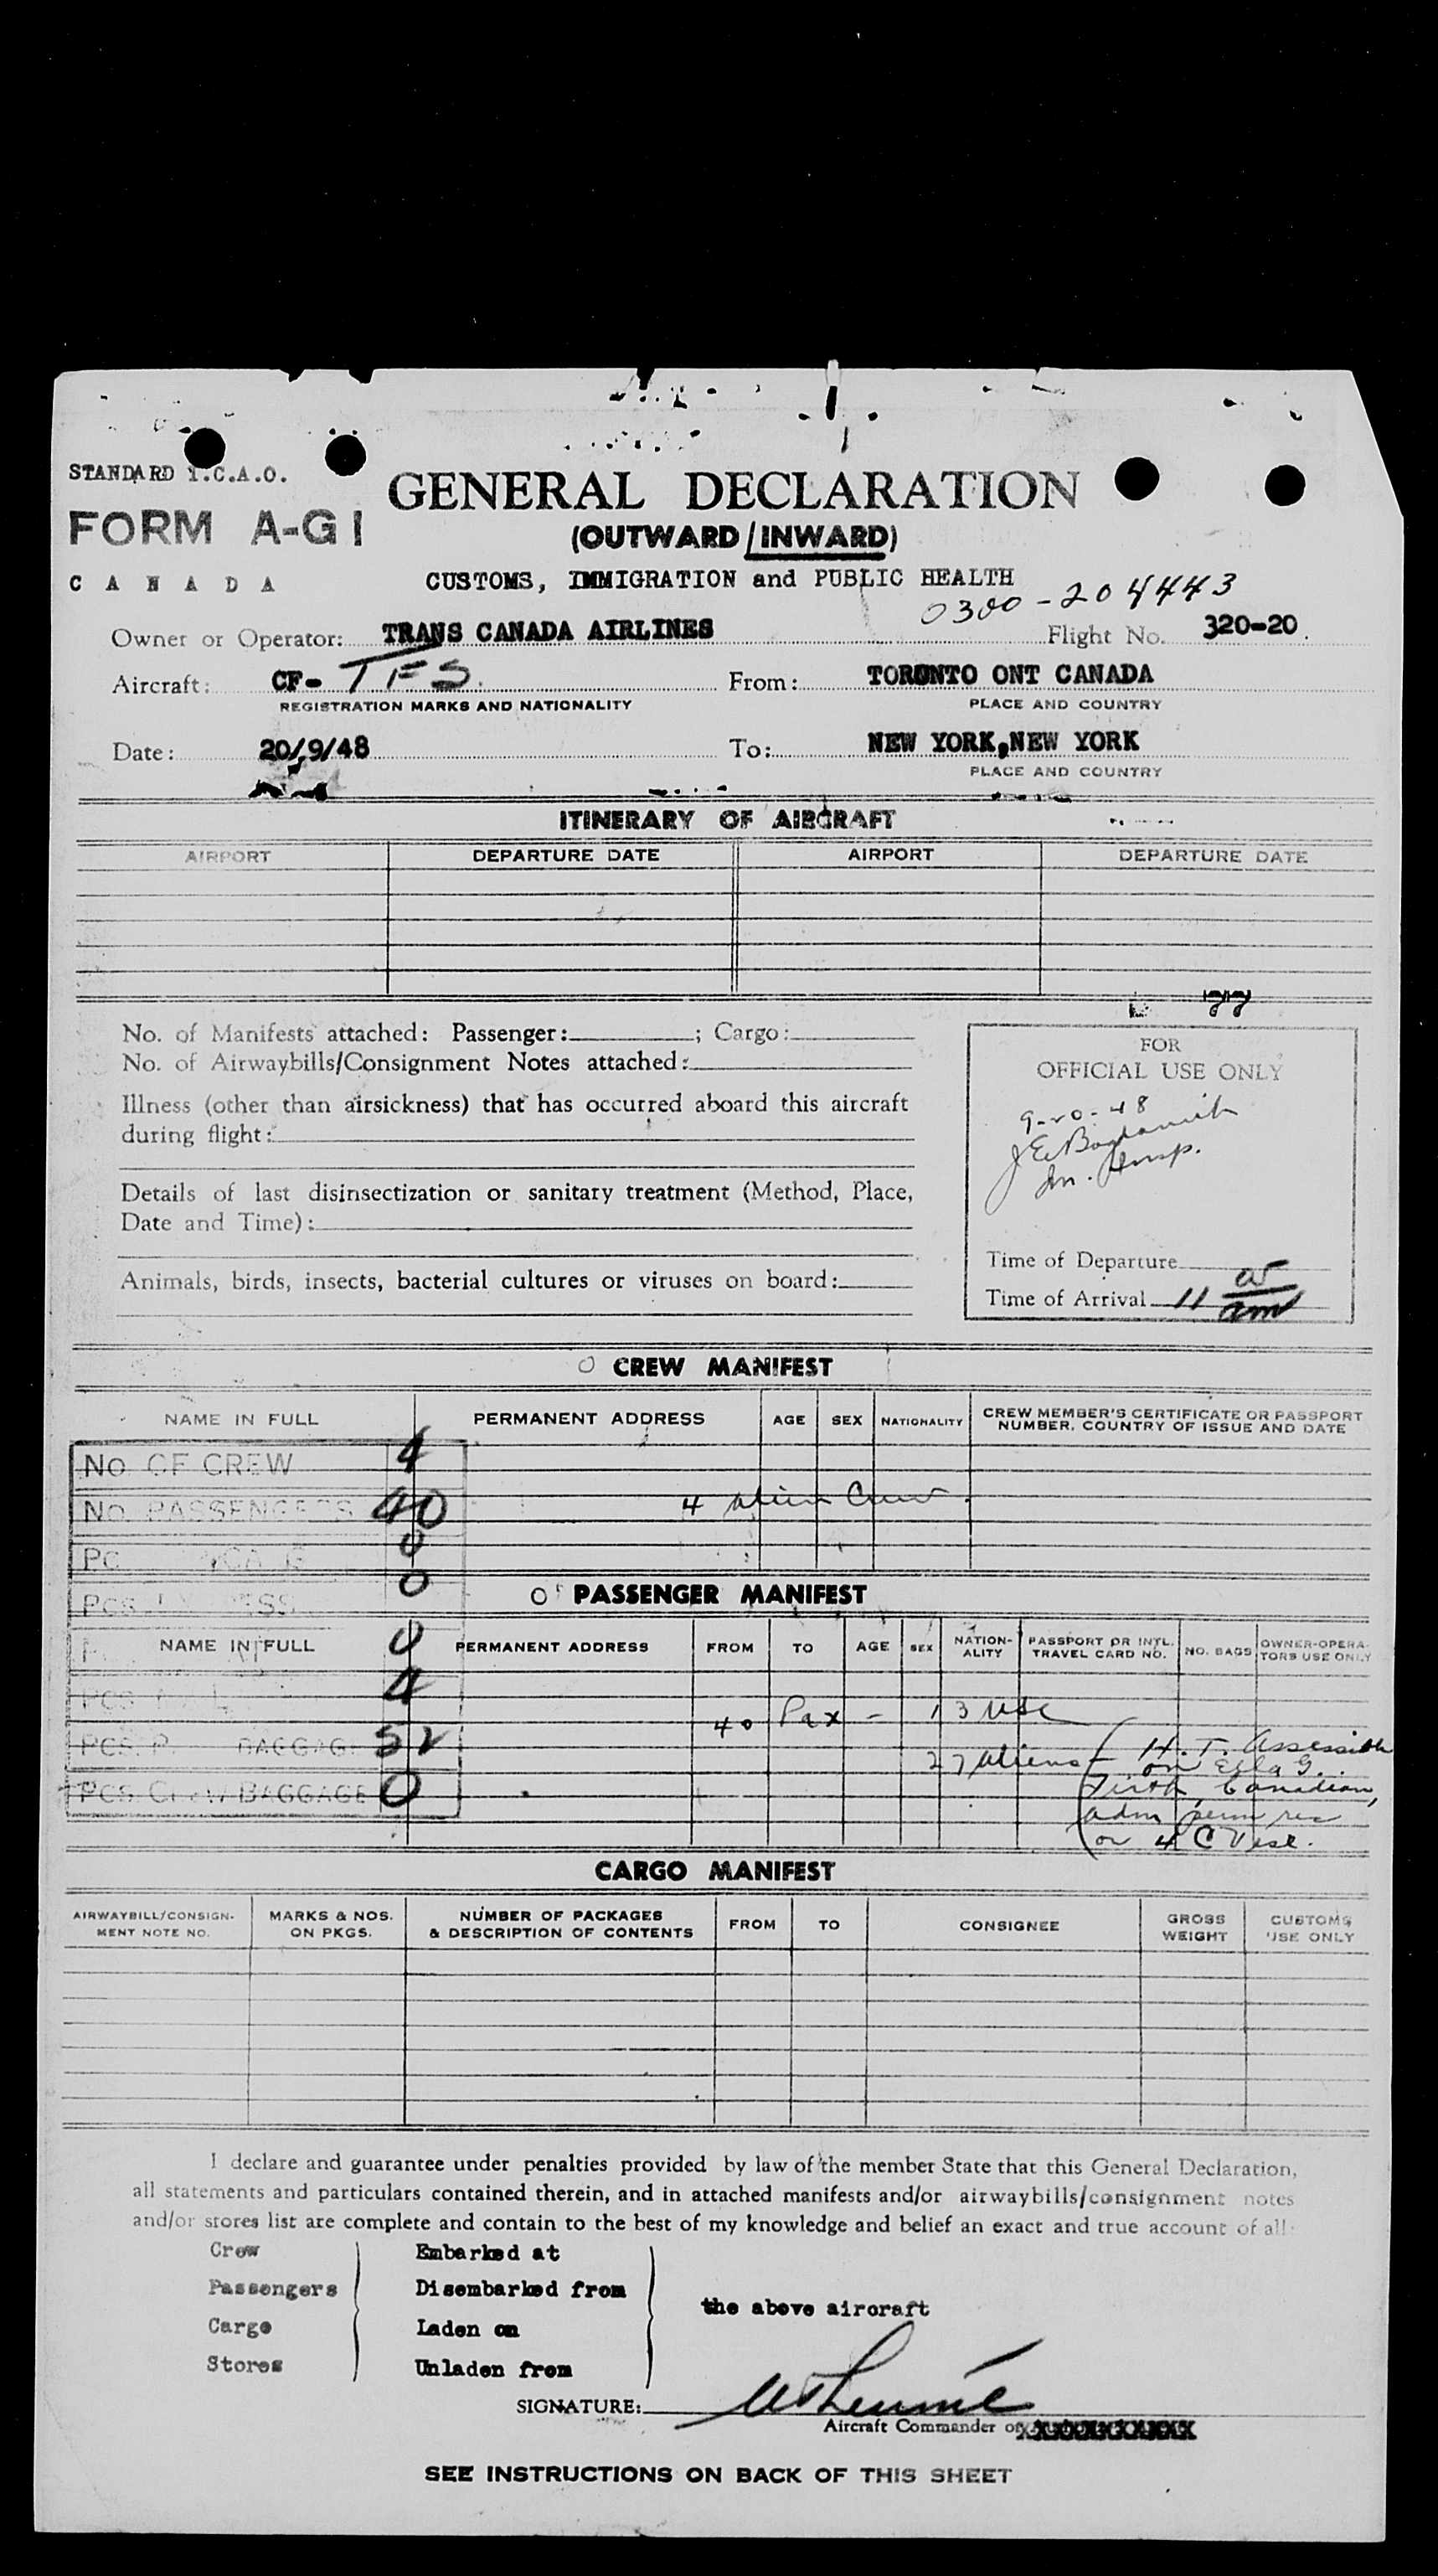 STANDARD I.C.A.O.
GENERAL DECLARATION
FORM A-G1
(OUTWARD/INWARD)
CANADA
CUSTOMS, IMMIGRATION and PUBLIC HEALTH
0300-204443
Owner or Operator: TRANS CANADA AIRLINES Flight No. 320-20
Aircraft: CF-TFS. From: TORONTO ONT CANADA
REGISTRATION MARKS AND NATIONALITY PLACE AND COUNTRY
Date: 20/9/48 To: NEW YORK,NEW YORK
PLACE AND COUNTRY
ITINERARY OF AIRCRAFT
AIRPORT DEPARTURE DATE AIRPORT DEPARTURE DATE
77
No. of Manifests attached: Passenger: ; Cargo:
No. of Airwaybills/Consignment Notes attached:
Illness (other than airsickness) that has occurred aboard this aircraft
during flight:
Details of last disinsectization or sanitary treatment (Method, Place,
Date and Time):
Animals, birds, insects, bacterial cultures or viruses on board:
FOR
OFFICIAL USE ONLY
9-20-48
Im. Insp.
Time of Departure
Time of Arrival 11 am
CREW MANIFEST
NAME IN FULL PERMANENT ADDRESS AGE SEX NATIONALITY CREW MEMBER'S CERTIFICATE OR PASSPORT
NUMBER, COUNTRY OF ISSUE AND DATE
No OF CREW 4
No. PASSENGERS 40
4 alien Crew.
Pc 0
Pcs. EXPRESS 0
PASSENGER MANIFEST
NAME IN FULL 0 PERMANENT ADDRESS FROM TO AGE SEX NATION-
ALITY PASSPORT OR INTL.
TRAVEL CARD NO. NO. BAGS OWNER-OPERA-
TORS USE ONLY
PCS 4
40 Pax - 13 USC
PCS. P. BAGGAGE 52
27 aliens - (H. T. assessible
on Ella G.
Firth, Canadian,
PCS. CREW BAGGAGE 0
adm perm res
on 4 C Vise.
CARGO MANIFEST
AIRWAYBILL/CONSIGN-
MENT NOTE NO. MARKS & NOS.
ON PKGS. NUMBER OF PACKAGES
& DESCRIPTION OF CONTENTS FROM TO CONSIGNEE GROSS
WEIGHT CUSTOMS
USE ONLY
I declare and guarantee under penalties provided by law of the member State that this General Declaration,
all statements and particulars contained therein, and in attached manifests and/or airwaybills/consignment notes
and/or stores list are complete and contain to the best of my knowledge and belief an exact and true account of all:
Crew Embarked at
Passengers Disembarked from
the above aircraft
Cargo Laden on
Stores Unladen from
SIGNATURE:
Aircraft Commander or
SEE INSTRUCTIONS ON BACK OF THIS SHEET